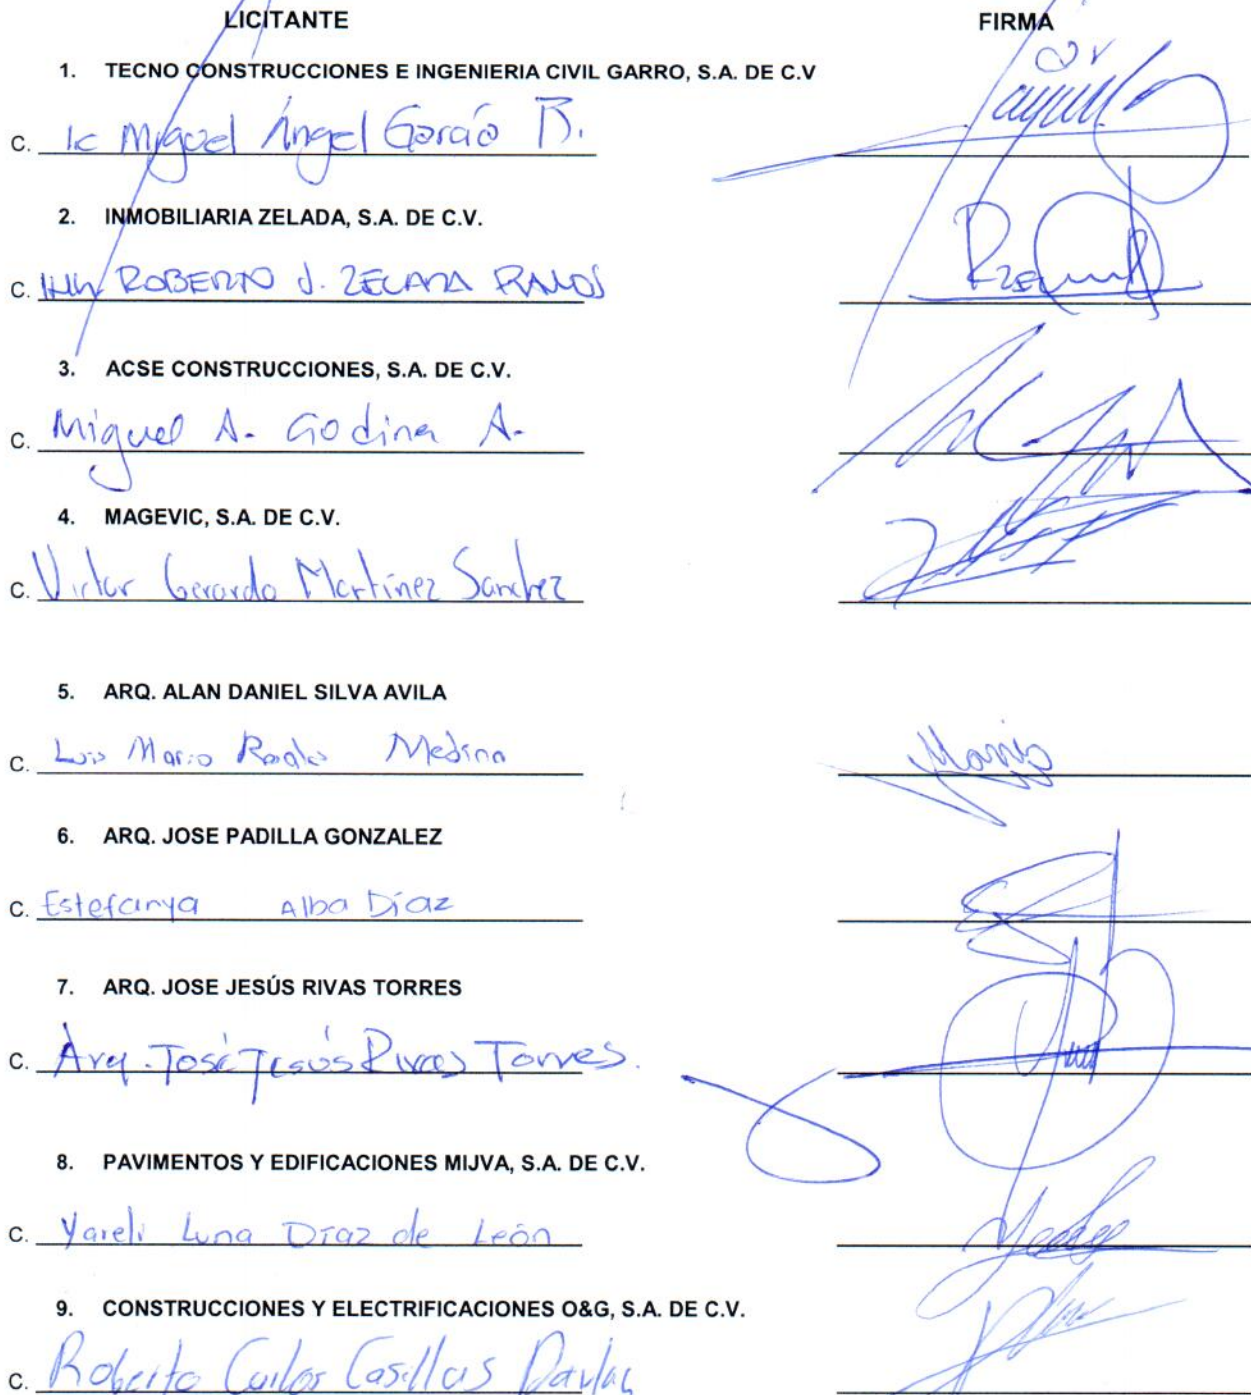 LICITANTE FIRMA
1. TECNO CONSTRUCCIONES E INGENIERIA CIVIL GARRO, S.A. DE C.V
C. Ic Miguel Ángel García B.
2. INMOBILIARIA ZELADA, S.A. DE C.V.
C. ROBERTO J. ZELADA RAMOS
3. ACSE CONSTRUCCIONES, S.A. DE C.V.
C. Miguel A. Godina A.
4. MAGEVIC, S.A. DE C.V.
C. Victor Gerardo Martínez Sanchez
5. ARQ. ALAN DANIEL SILVA AVILA
C. Luis Mario Medina Mario
6. ARQ. JOSE PADILLA GONZALEZ
C. Estefanya Alba Díaz
7. ARQ. JOSE JESÚS RIVAS TORRES
C. Arq. José Jesús Rivas Torres.
8. PAVIMENTOS Y EDIFICACIONES MIJVA, S.A. DE C.V.
C. Yareli Luna Díaz de León
9. CONSTRUCCIONES Y ELECTRIFICACIONES O&G, S.A. DE C.V.
C. Roberto Carlos Casillas